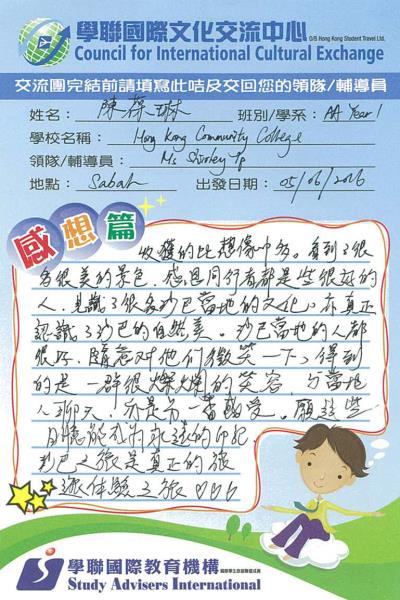 學聯國際文化交流中心 O/B Hong Kong Student Travel Ltd.
Council for International Cultural Exchange
交流團完結前請填寫此咭及交回您的領隊/輔導員
姓名: 陳葆琳 班別/學系: AA Year 1
學校名稱: Hong Kong Community College
領隊/輔導員: Ms Shirley Ip
地點: Sabah 出發日期: 05/06/2016
感想篇
收獲的比想像中多。看到了很
多很美的景色,感恩同行者都是些很好的
人,見識了很多沙巴當地的文化,亦真正
認識了沙巴的自然美。沙巴當地的人都
很好,隨意对他们微笑一下,得到
的是一群很燦爛的笑容,与當地
人聊天,亦是另一番感受。願這些
回憶能成为永遠的印記
沙巴之旅是真正的旅
遊体驗之旅 ♡♡♡
學聯國際教育機構
Study Advisers International